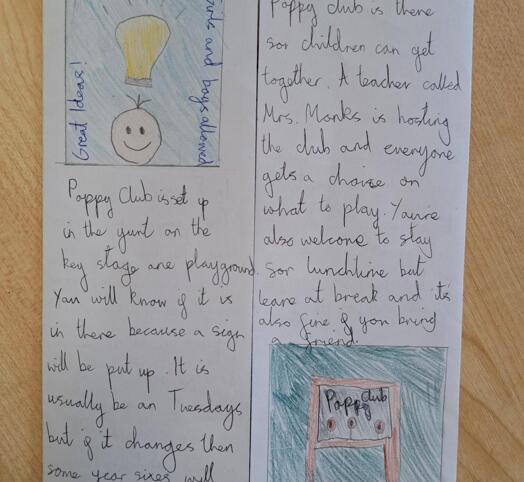 Great Ideas!
girls and boys allowed
Poppy Club is set up
in the yurt on the
key stage one playground.
You will know if it is
in there because a sign
will be put up. It is
usually be on Tuesdays
but if it changes then
some year sixes will
Poppy club is there
for children can get
together. A teacher called
Mrs. Monks is hosting
the club and everyone
gets a choice on
what to play. You're
also welcome to stay
for lunchtime but
leave at break and it's
also fine if you bring
a friend.
Poppy Club